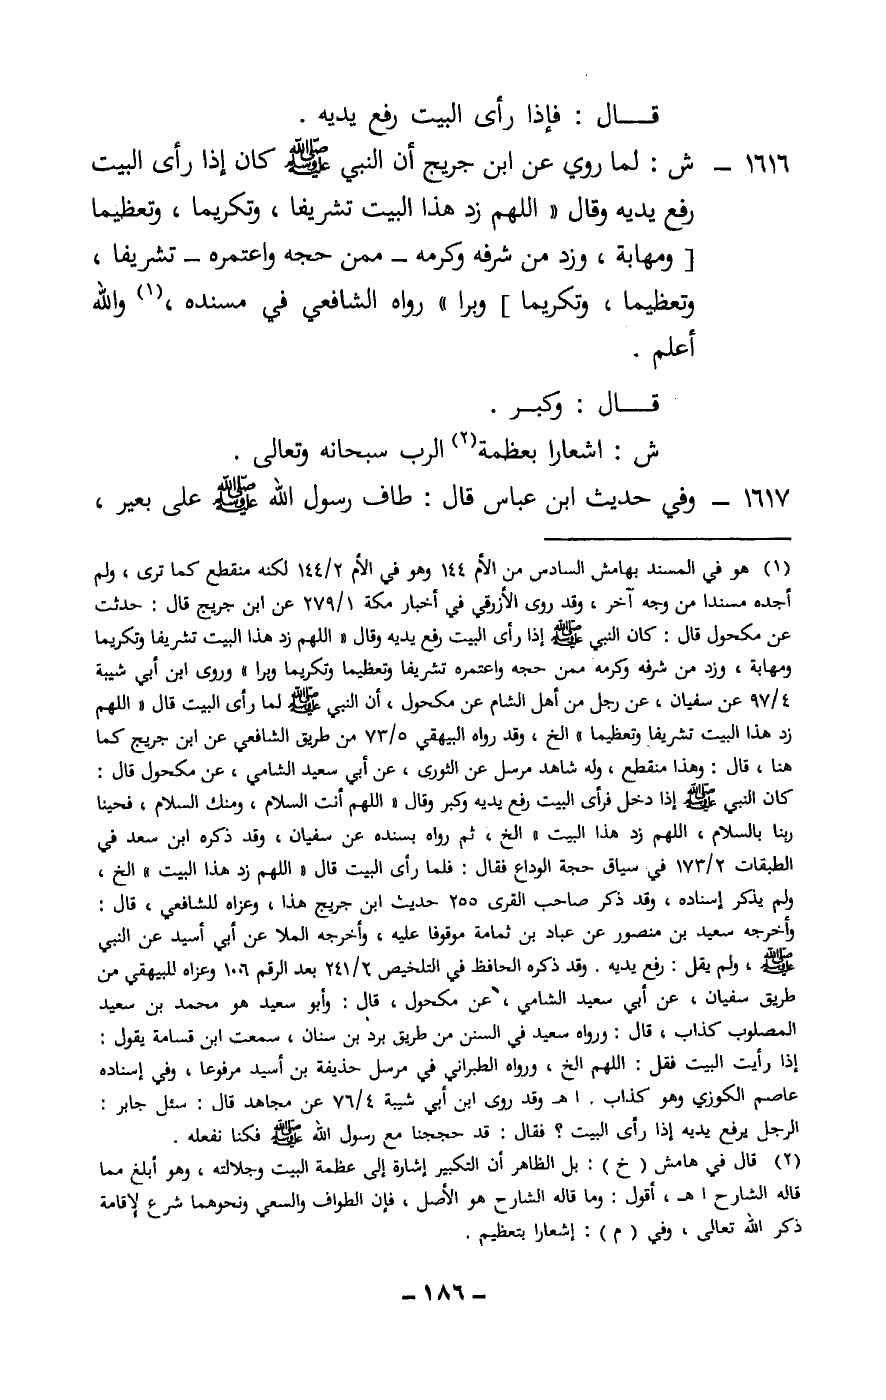 قــــال : فإذا رأى البيت رفع يديه .
١٦١٦ ــ ش : لما روي عن ابن جريج أن النبي ﷺ كان إذا رأى البيت
رفع يديه وقال « اللهم زد هذا البيت تشريفا ، وتكريما ، وتعظيما
[ ومهابة ، وزد من شرفه وكرمه ــ ممن حجه واعتمره ــ تشريفا ،
وتعظيما ، وتكريما ] وبرا » رواه الشافعي في مسنده ،(١) والله
أعلم .
قــــال : وكبــر .
ش : اشعارا بعظمة(٢) الرب سبحانه وتعالى .
١٦١٧ ــ وفي حديث ابن عباس قال : طاف رسول الله ﷺ على بعير ،
(١) هو في المسند بهامش السادس من الأم ١٤٤ وهو في الأم ١٤٤/٢ لكنه منقطع كما ترى ، ولم
أجده مسندا من وجه آخر ، وقد روى الأزرقي في أخبار مكة ٢٧٩/١ عن ابن جريج قال : حدثت
عن مكحول قال : كان النبي ﷺ إذا رأى البيت رفع يديه وقال « اللهم زد هذا البيت تشريفا وتكريما
ومهابة ، وزد من شرفه وكرمه ممن حجه واعتمره تشريفا وتعظيما وتكريما وبرا » وروى ابن أبي شيبة
٩٧/٤ عن سفيان ، عن رجل من أهل الشام عن مكحول ، أن النبي ﷺ لما رأى البيت قال « اللهم
زد هذا البيت تشريفا وتعظيما » الخ ، وقد رواه البيهقي ٧٣/٥ من طريق الشافعي عن ابن جريج كما
هنا ، قال : وهذا منقطع ، وله شاهد مرسل عن الثورى ، عن أبي سعيد الشامي ، عن مكحول قال :
كان النبي ﷺ إذا دخل فرأى البيت رفع يديه وكبر وقال « اللهم أنت السلام ، ومنك السلام ، فحينا
ربنا بالسلام ، اللهم زد هذا البيت » الخ ، ثم رواه بسنده عن سفيان ، وقد ذكره ابن سعد في
الطبقات ١٧٣/٢ في سياق حجة الوداع فقال : فلما رأى البيت قال « اللهم زد هذا البيت » الخ ،
ولم يذكر إسناده ، وقد ذكر صاحب القرى ٢٥٥ حديث ابن جريج هذا ، وعزاه للشافعي ، قال :
وأخرجه سعيد بن منصور عن عباد بن ثمامة موقوفا عليه ، وأخرجه الملا عن أبي أسيد عن النبي
ﷺ ، ولم يقل : رفع يديه . وقد ذكره الحافظ في التلخيص ٢٤١/٢ بعد الرقم ١٠٠٦ وعزاه للبيهقي من
طريق سفيان ، عن أبي سعيد الشامي ، عن مكحول ، قال : وأبو سعيد هو محمد بن سعيد
المصلوب كذاب ، قال : ورواه سعيد في السنن من طريق برد بن سنان ، سمعت ابن قسامة يقول :
إذا رأيت البيت فقل : اللهم الخ ، ورواه الطبراني في مرسل حذيفة بن أسيد مرفوعا ، وفي إسناده
عاصم الكوزي وهو كذاب . ا هـ وقد روى ابن أبي شيبة ٧٦/٤ عن مجاهد قال : سئل جابر :
الرجل يرفع يديه إذا رأى البيت ؟ فقال : قد حججنا مع رسول الله ﷺ فكنا نفعله .
(٢) قال في هامش ( خ ) : بل الظاهر أن التكبير إشارة إلى عظمة البيت وجلالته ، وهو أبلغ مما
قاله الشارح ا هـ ، أقول : وما قاله الشارح هو الأصل ، فإن الطواف والسعي ونحوهما شرع لإقامة
ذكر الله تعالى ، وفي ( م ) : إشعارا بتعظيم .
ــ ١٨٦ ــ